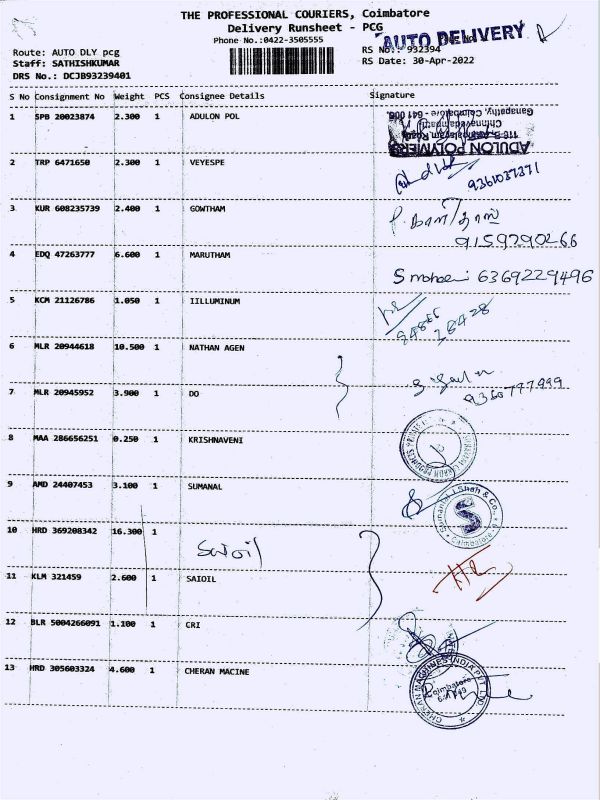 THE PROFESSIONAL COURIERS, Coimbatore
Delivery Runsheet - PCG
Phone No.:0422-3505555
AUTO DELIVERY
Route: AUTO DLY pcg
Staff: SATHISHKUMAR
DRS No.: DCJB93239401
RS No.: 932394
RS Date: 30-Apr-2022
S No Consignment No Weight PCS Consignee Details Signature
1 SPB 20023874 2.300 1 ADULON POL
ADULON POLYMERS
Ganapathy, Coimbatore - 641 006
2 TRP 6471650 2.300 1 VEYESPE
9361037371
3 KUR 608235739 2.400 1 GOWTHAM
9159290266
4 EDQ 47263777 6.600 1 MARUTHAM
6369229496
5 KCM 21126786 1.050 1 IILLUMINUM
6 MLR 20944618 10.500 1 NATHAN AGEN
7 MLR 20945952 3.900 1 DO
9360797999
8 MAA 286656251 0.250 1 KRISHNAVENI
9 AMD 24407453 3.100 1 SUMANAL
Sumanlal J Shah & Co.,
S
Coimbatore
10 HRD 369208342 16.300 1 Saioil
11 KLM 321459 2.600 1 SAIOIL
12 BLR 5004266091 1.100 1 CRI
13 HRD 305603324 4.600 1 CHERAN MACINE
CHERAN MACHINES INDIA PVT LTD
Coimbatore